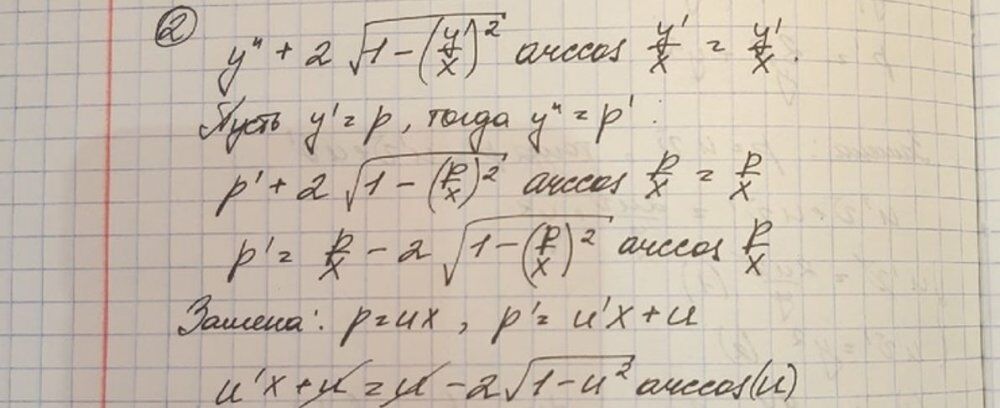 ② y" + 2 √(1 - (y'/x)²) arccos y'/x = y'/x.
Пусть y' = p, тогда y" = p'.
p' + 2 √(1 - (p/x)²) arccos p/x = p/x
p' = p/x - 2 √(1 - (p/x)²) arccos p/x
Замена: p = ux, p' = u'x + u
u'x + u = u - 2 √(1 - u²) arccos(u)